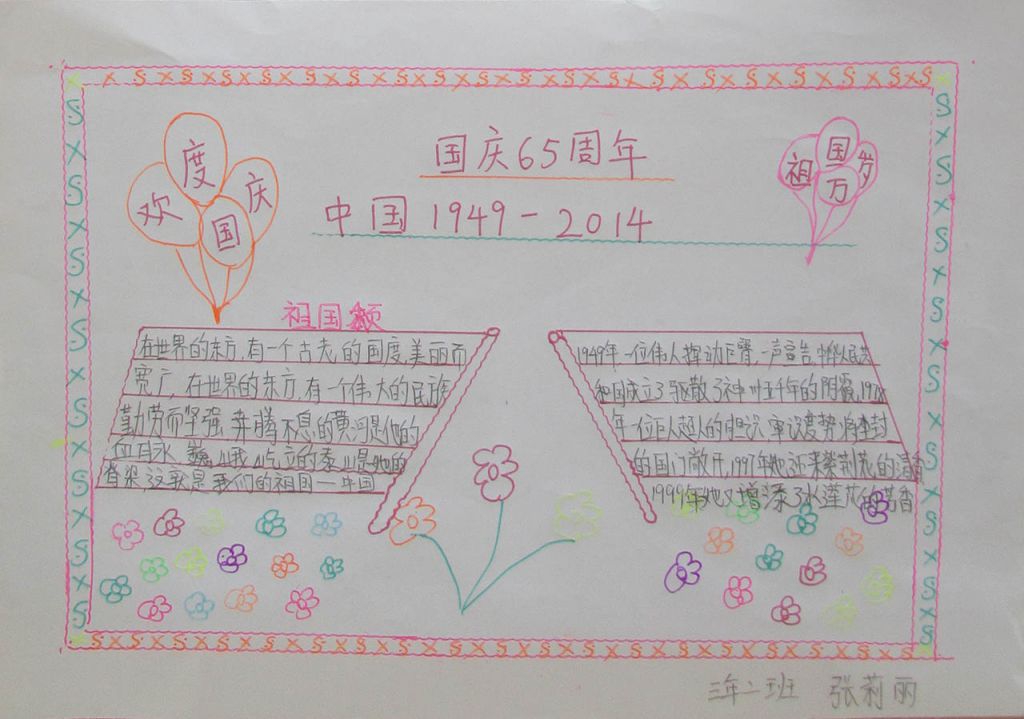 欢度国庆
国庆65周年
中国1949-2014
祖国万岁
祖国颂
在世界的东方,有一个古老的国度,美丽而
宽广,在世界的东方,有一个伟大的民族
勤劳而坚强,奔腾不息的黄河是他的
血脉,巍峨屹立的泰山是他的
脊梁,这就是我们的祖国一中国
1949年一位伟人挥动巨臂,一声宣告,中华人民共
和国成立了驱散了神州五千年的阴霾,1978
年一位巨人超人的胆识,审议度势将查封
的国门敞开,1997年她迎来紫荆花的清香
1999年她又增添了水莲花的芳香
三年二班 张莉丽